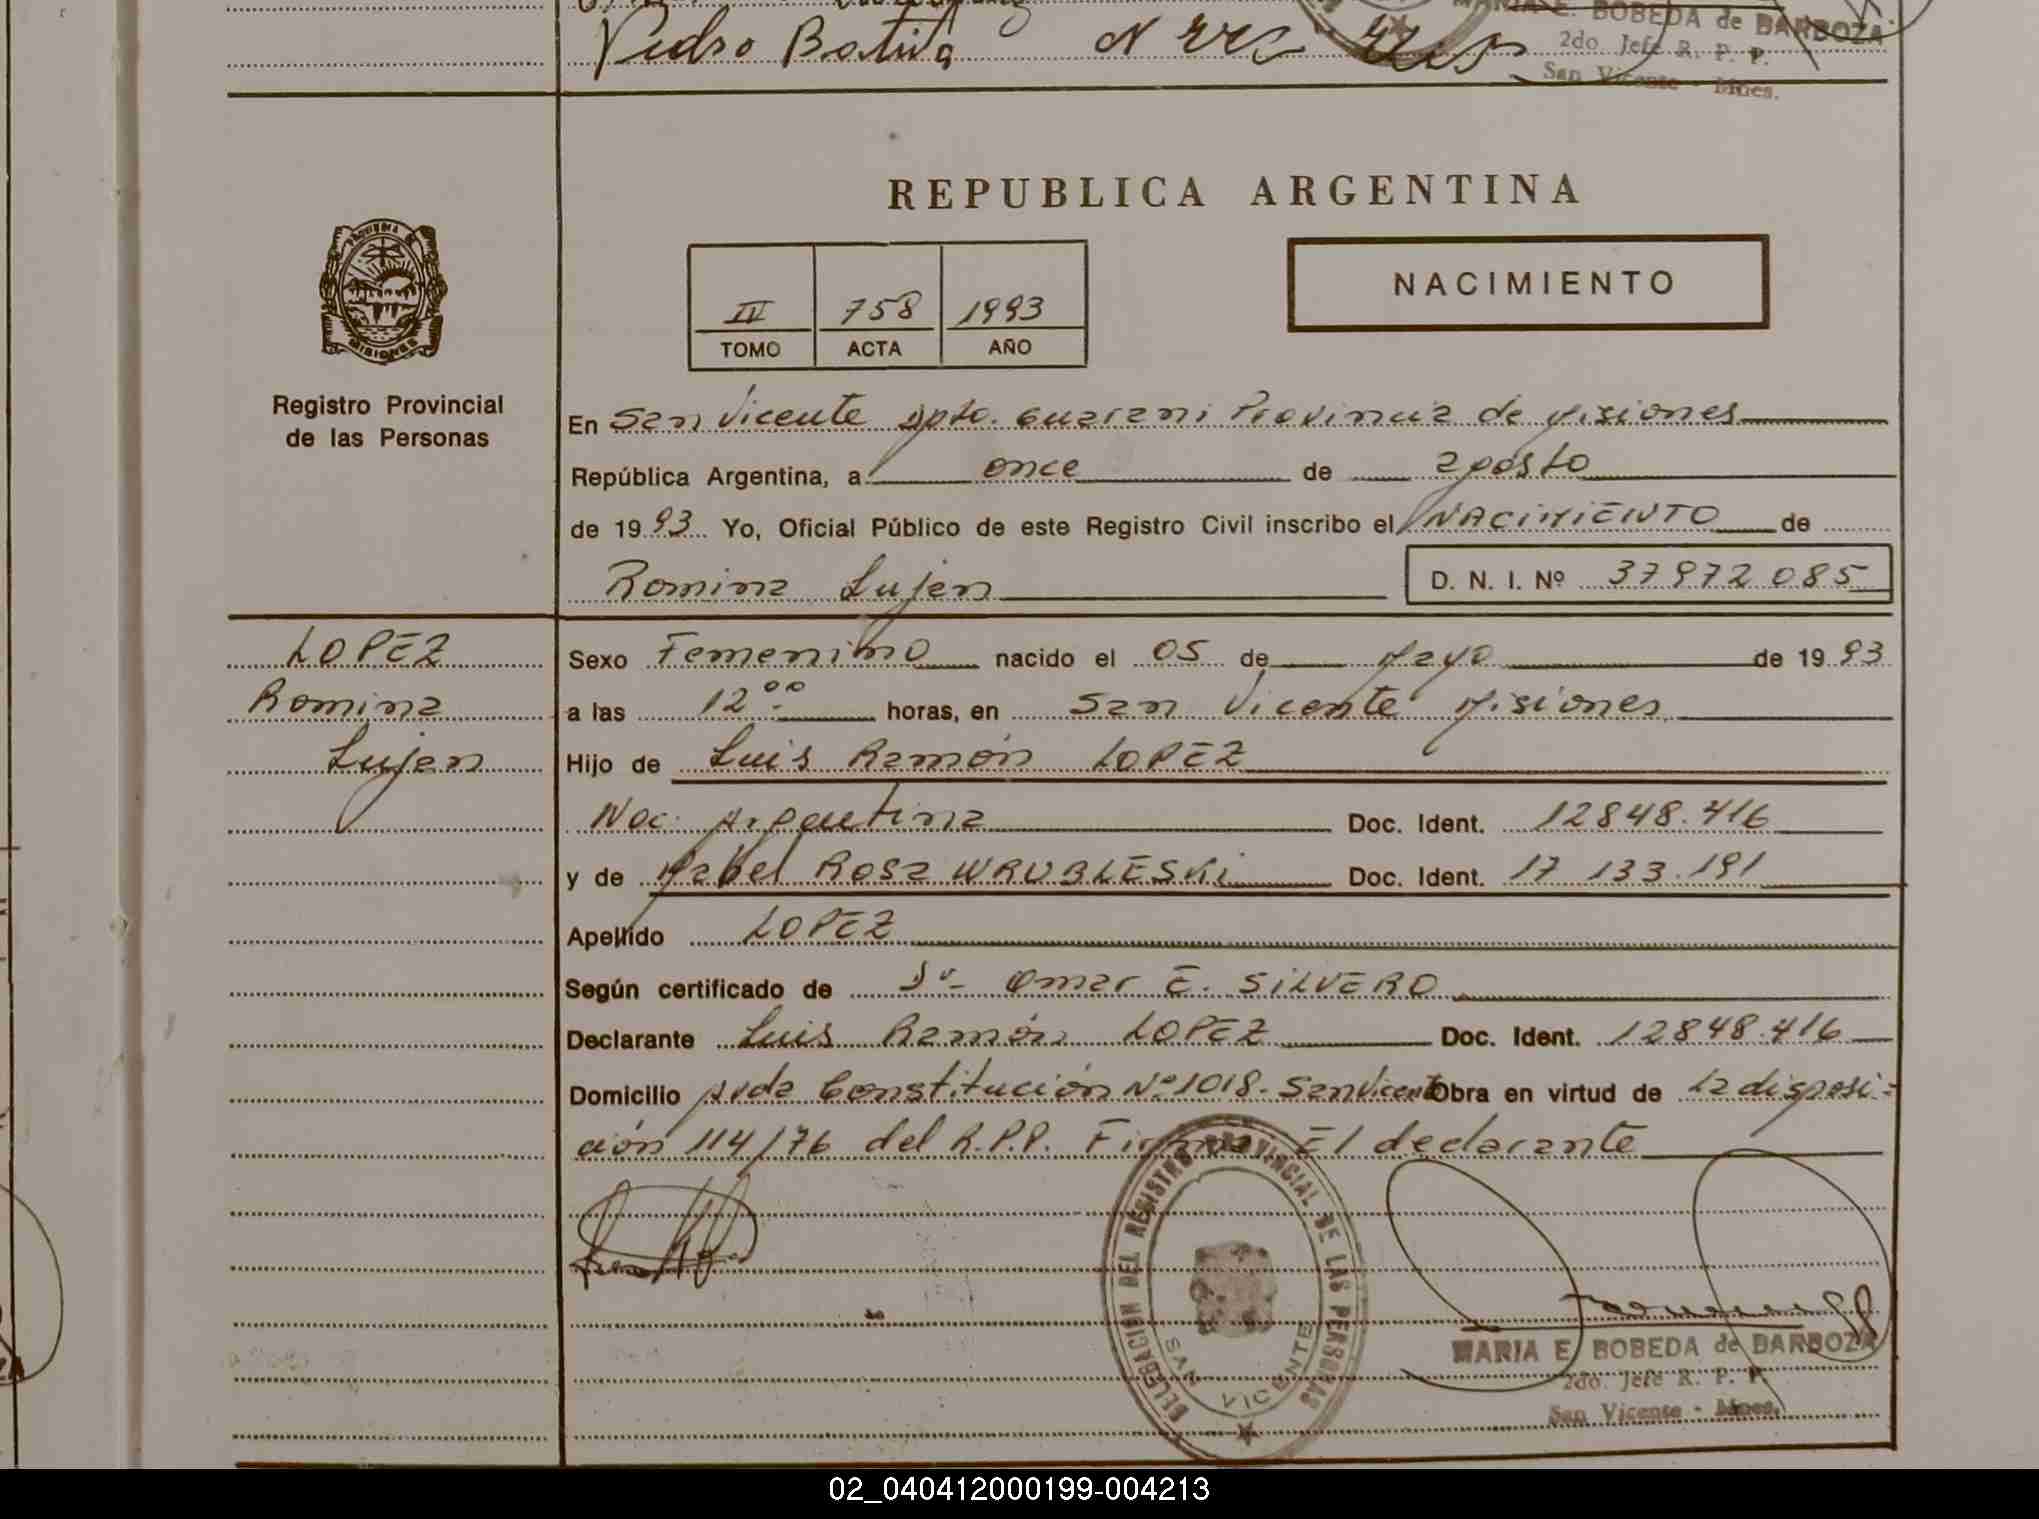 Pedro Batista
MARIA E. BOBEDA de BARBOZA
2do. Jefe R. P. P.
San Vicente - Mnes.
REPUBLICA ARGENTINA
MISIONES
Registro Provincial
de las Personas
IV 758 1993
TOMO ACTA AÑO
NACIMIENTO
En San Vicente Dpto. Guarani Provincia de Misiones
República Argentina, a once de agosto
de 1993 Yo, Oficial Público de este Registro Civil inscribo el NACIMIENTO de
Romina Lujan D. N. I. Nº 37972085
LOPEZ
Romina
Lujan
Sexo Femenino nacido el 05 de Mayo de 1993
a las 12⁰⁰ horas, en San Vicente Misiones
Hijo de Luis Ramón LOPEZ
Nac. Argentina Doc. Ident. 12848.416
y de Mabel Rosa WRUBLESKi Doc. Ident. 17 133.191
Apellido LOPEZ
Según certificado de Dr. Omar E. SiLVERO
Declarante Luis Ramón LOPEZ Doc. Ident. 12848.416
Domicilio Avda Constitución Nº 1018- San Vicente Obra en virtud de la disposi-
ción 114/76 del R.P.P. Firma El declarante
DELEGACION DEL REGISTRO PROVINCIAL DE LAS PERSONAS
SAN VICENTE
MARIA E. BOBEDA de BARBOZA
2do. Jefe R. P. P.
San Vicente - Mnes.
02_040412000199-004213